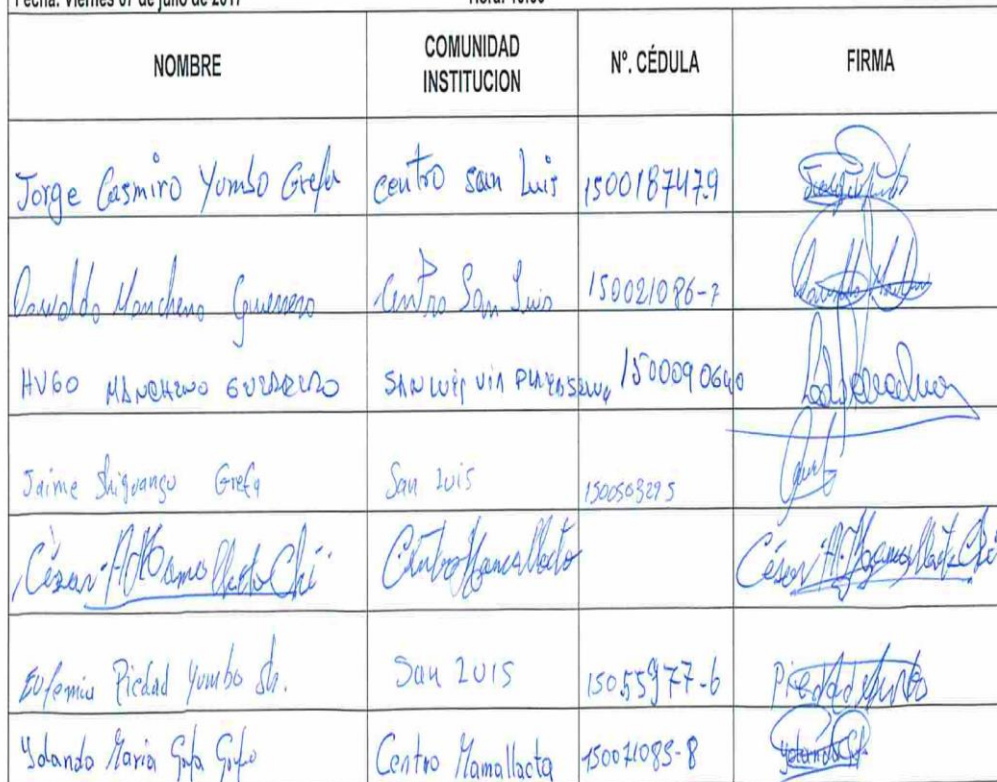 Fecha: Viernes 07 de julio de 2017
NOMBRE COMUNIDAD INSTITUCION Nº. CÉDULA FIRMA
Jorge Casmiro Yumbo Grefa centro san Luis 150018747.9
Oswaldo Mancheno Guerrero Centro San Luis 150021086-7
HUGO MANCHENO GUERRERO SAN LUIS VIA 1500090640
Jaime Shiguango Grefa San Luis 1500503295
César A. Mamallacta Chi. Centro Mamallacta César A. Mamallacta Chi
Eufemia Piedad Yumbo Sh. San LUIS 15055977-6
Yolanda Maria Grefa Grefa Centro Mamallacta 150071083-8